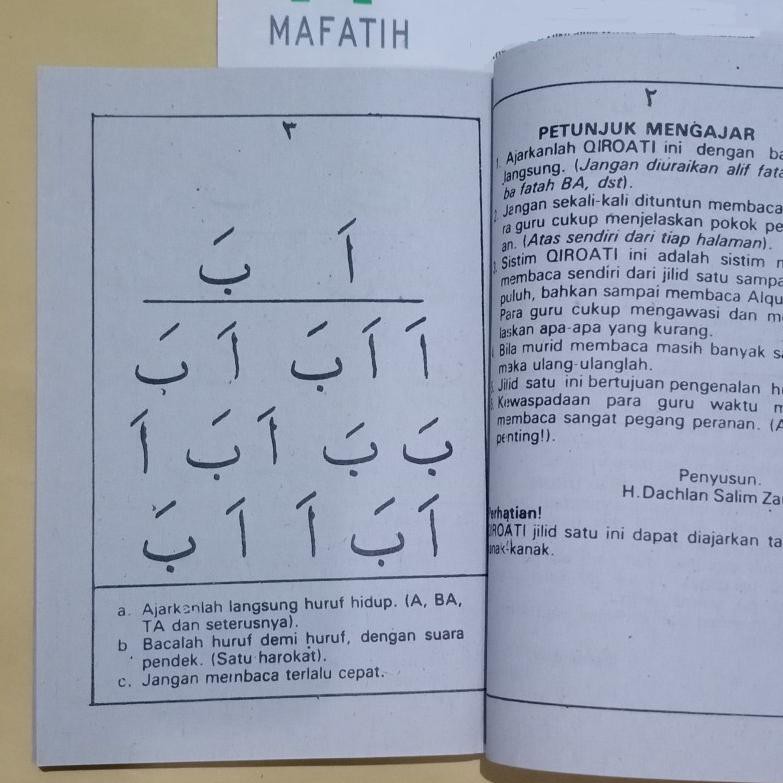 MAFATIH
٢
PETUNJUK MENGAJAR
1. Ajarkanlah QIROATI ini dengan ba
langsung. (Jangan diuraikan alif fata
ba fatah BA, dst).
2. Jangan sekali-kali dituntun membaca
ra guru cukup menjelaskan pokok pe
an. (Atas sendiri dari tiap halaman).
3. Sistim QIROATI ini adalah sistim
membaca sendiri dari jilid satu sampa
puluh, bahkan sampai membaca Alqu
Para guru cukup mengawasi dan me
laskan apa-apa yang kurang.
Bila murid membaca masih banyak sa
maka ulang-ulanglah.
Jilid satu ini bertujuan pengenalan hu
Kewaspadaan para guru waktu m
membaca sangat pegang peranan. (A
penting!).
Penyusun.
H.Dachlan Salim Za
Perhatian!
QIROATI jilid satu ini dapat diajarkan ta
anak-kanak.
٣
اَ بَ
اَ اَ بَ اَ بَ
بَ بَ اَ بَ اَ
اَ بَ اَ اَ بَ
a. Ajarkanlah langsung huruf hidup. (A, BA,
TA dan seterusnya).
b Bacalah huruf demi huruf, dengan suara
pendek. (Satu harokat).
c. Jangan membaca terlalu cepat.